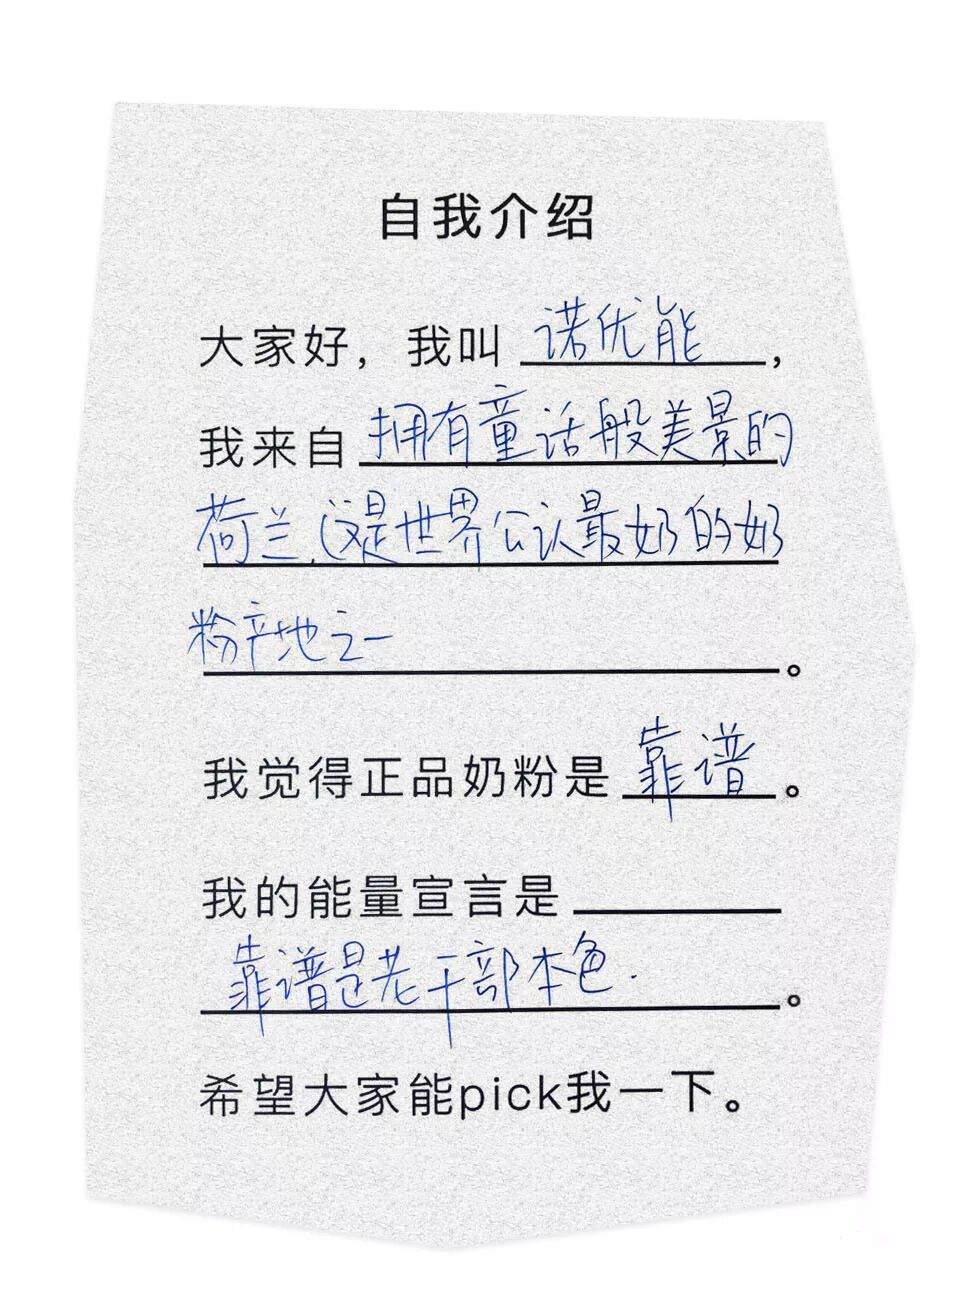 自我介绍
大家好，我叫诺优能，
我来自拥有童话般美景的
荷兰,这是世界公认最奶的奶
粉产地之一。
我觉得正品奶粉是靠谱。
我的能量宣言是
靠谱是老干部本色.。
希望大家能pick我一下。